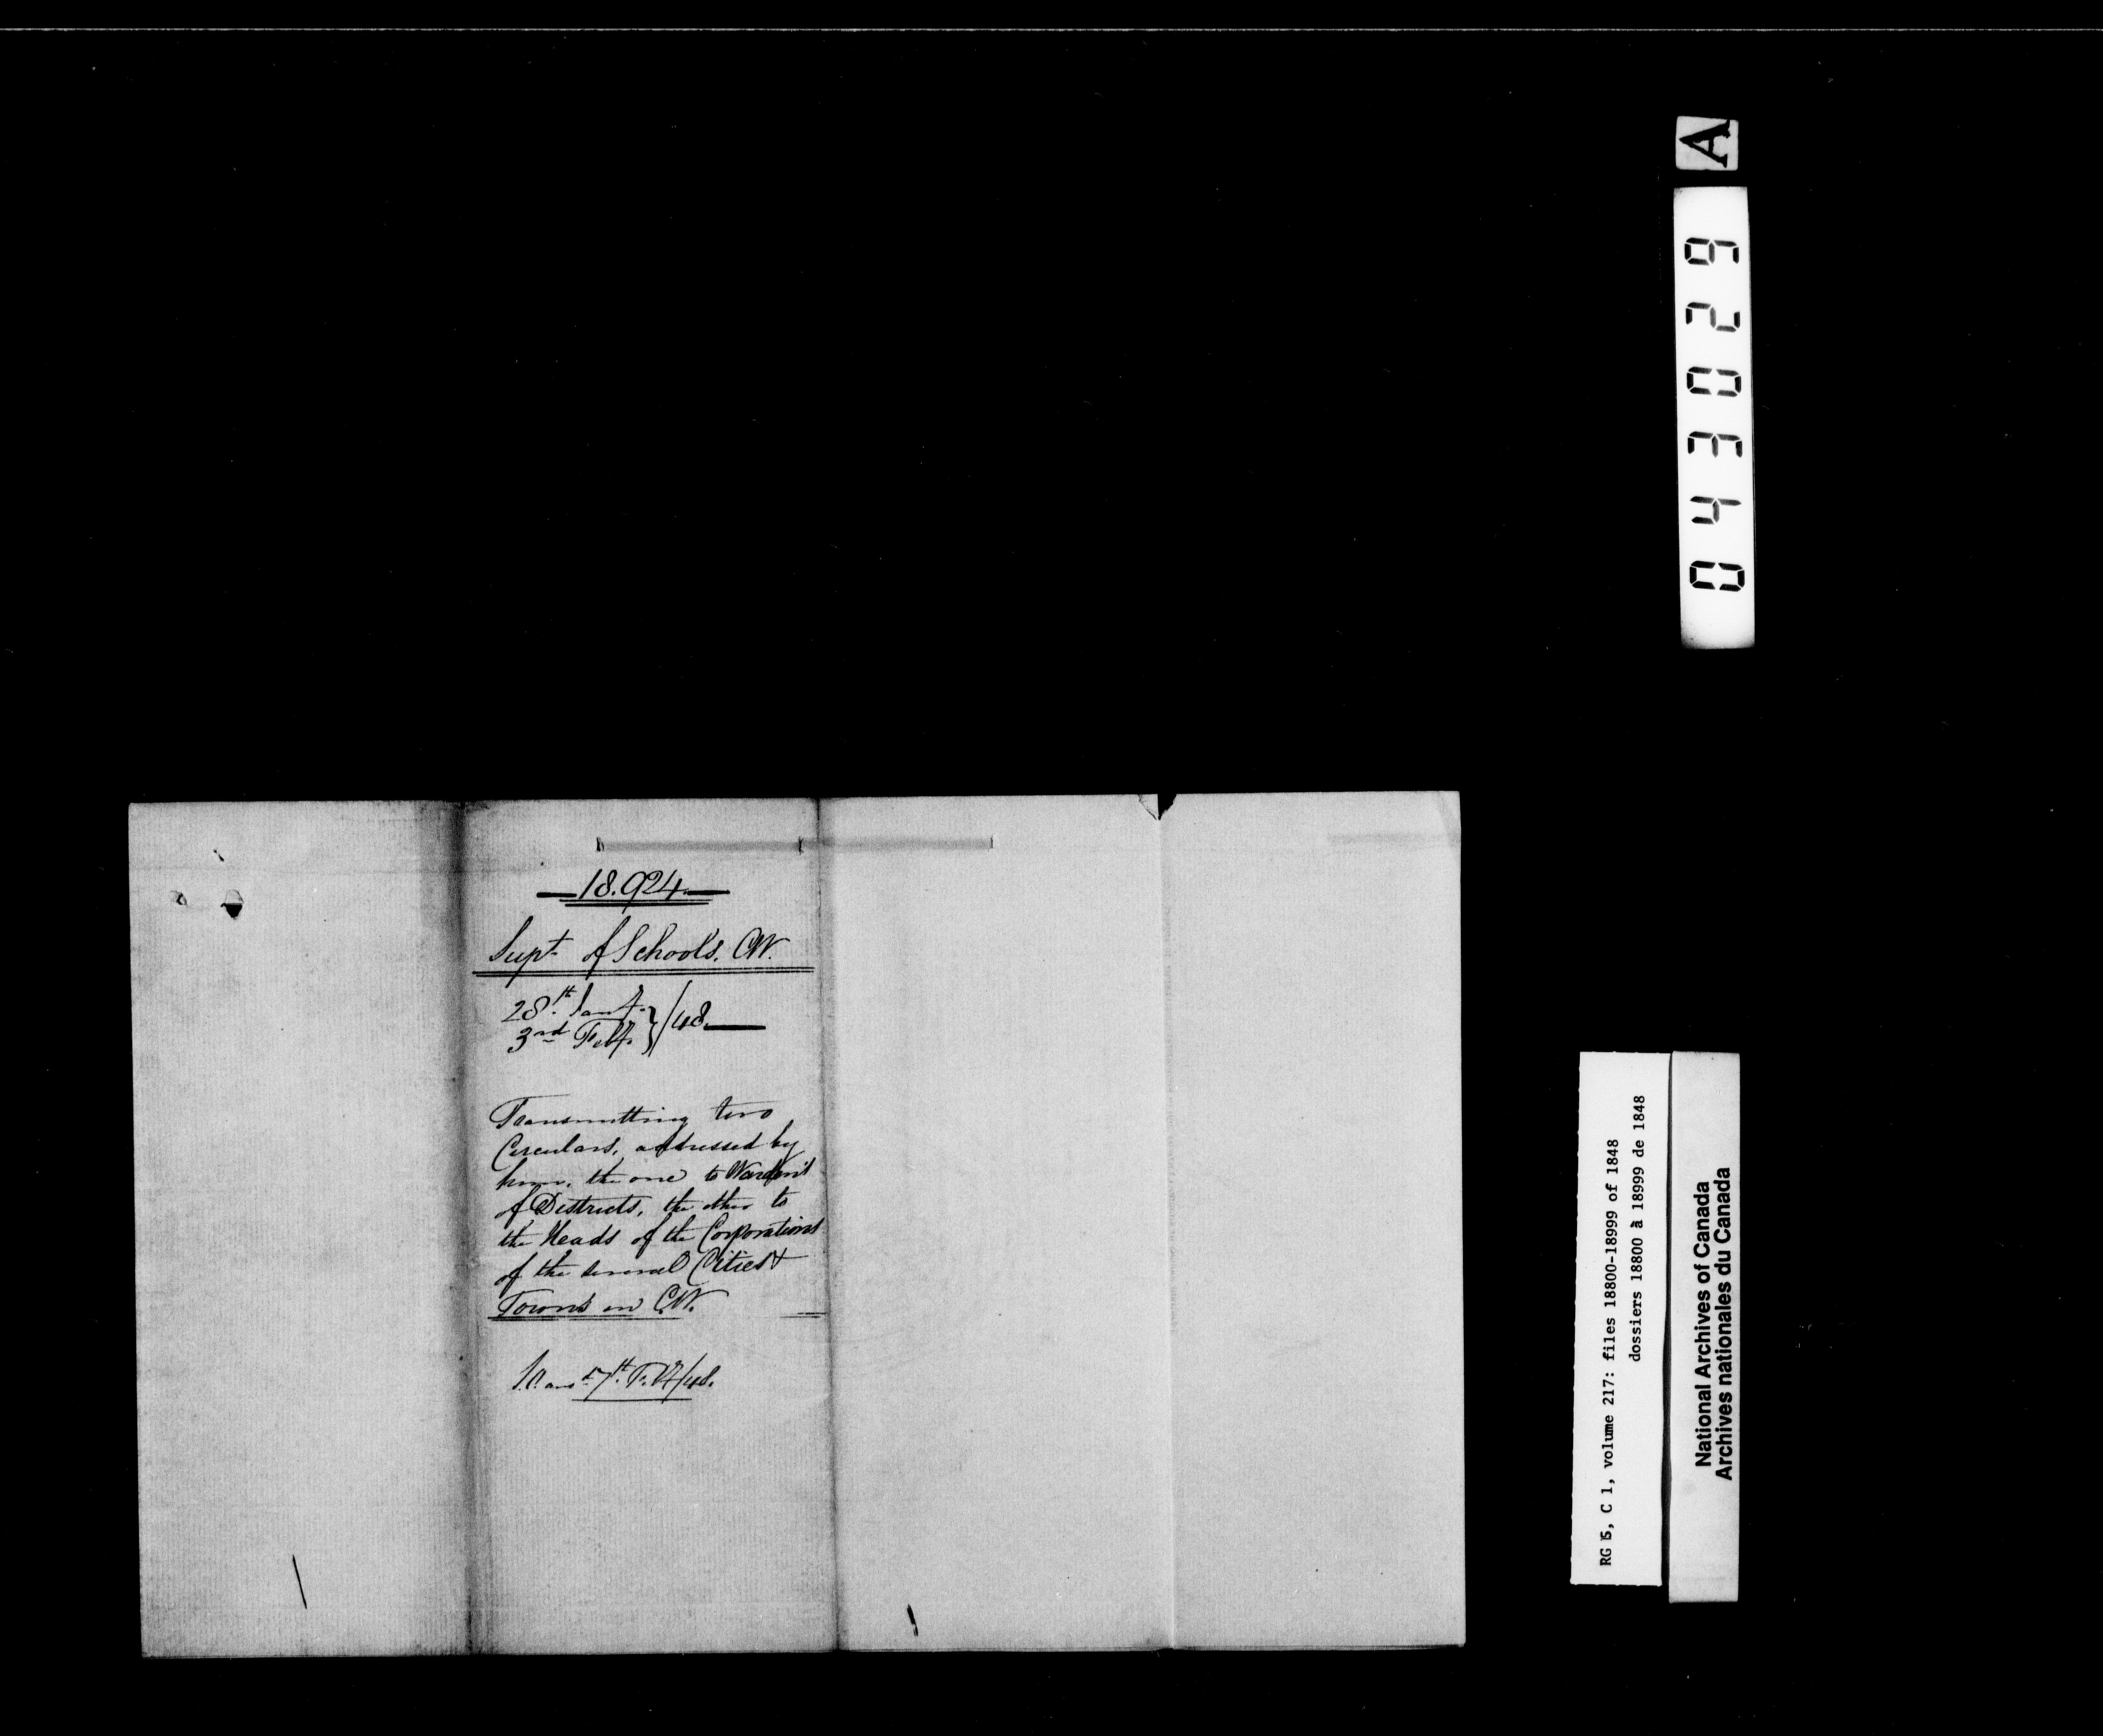 18.924
Supt of Schools. C.W.
28th Jany
3rd Feby } /48.
Transmitting two
Circulars, addressed by
him, the one to Wardens
of Districts, the other to
the Heads of the Corporations
of the several Cities &
Towns in C.W.
7th Feby/48.
A
043029
RG 5, C 1, volume 217: files 18800-18999 of 1848
dossiers 18800 à 18999 de 1848
National Archives of Canada
Archives nationales du Canada